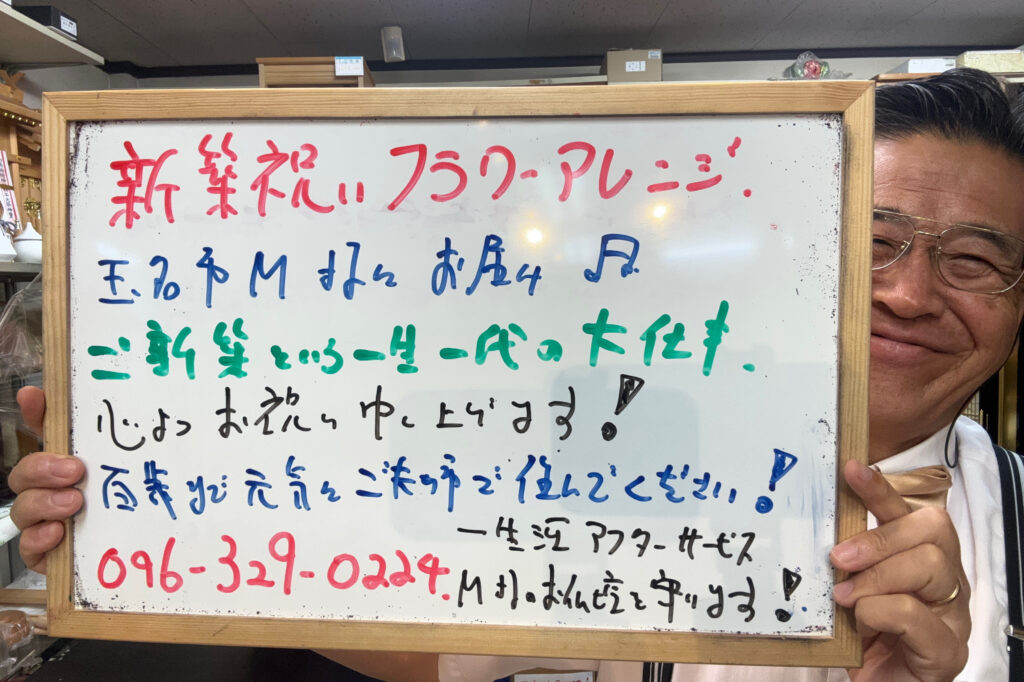 新築祝いフラワーアレンジ.
玉名市M様にお届け
ご新築という一生一代の大仕事.
心よりお祝い申し上げます!
百歳まで元気にご夫婦で住んでください!
一生涯アフターサービス
096-329-0224.
M様のお仏壇を守ります!